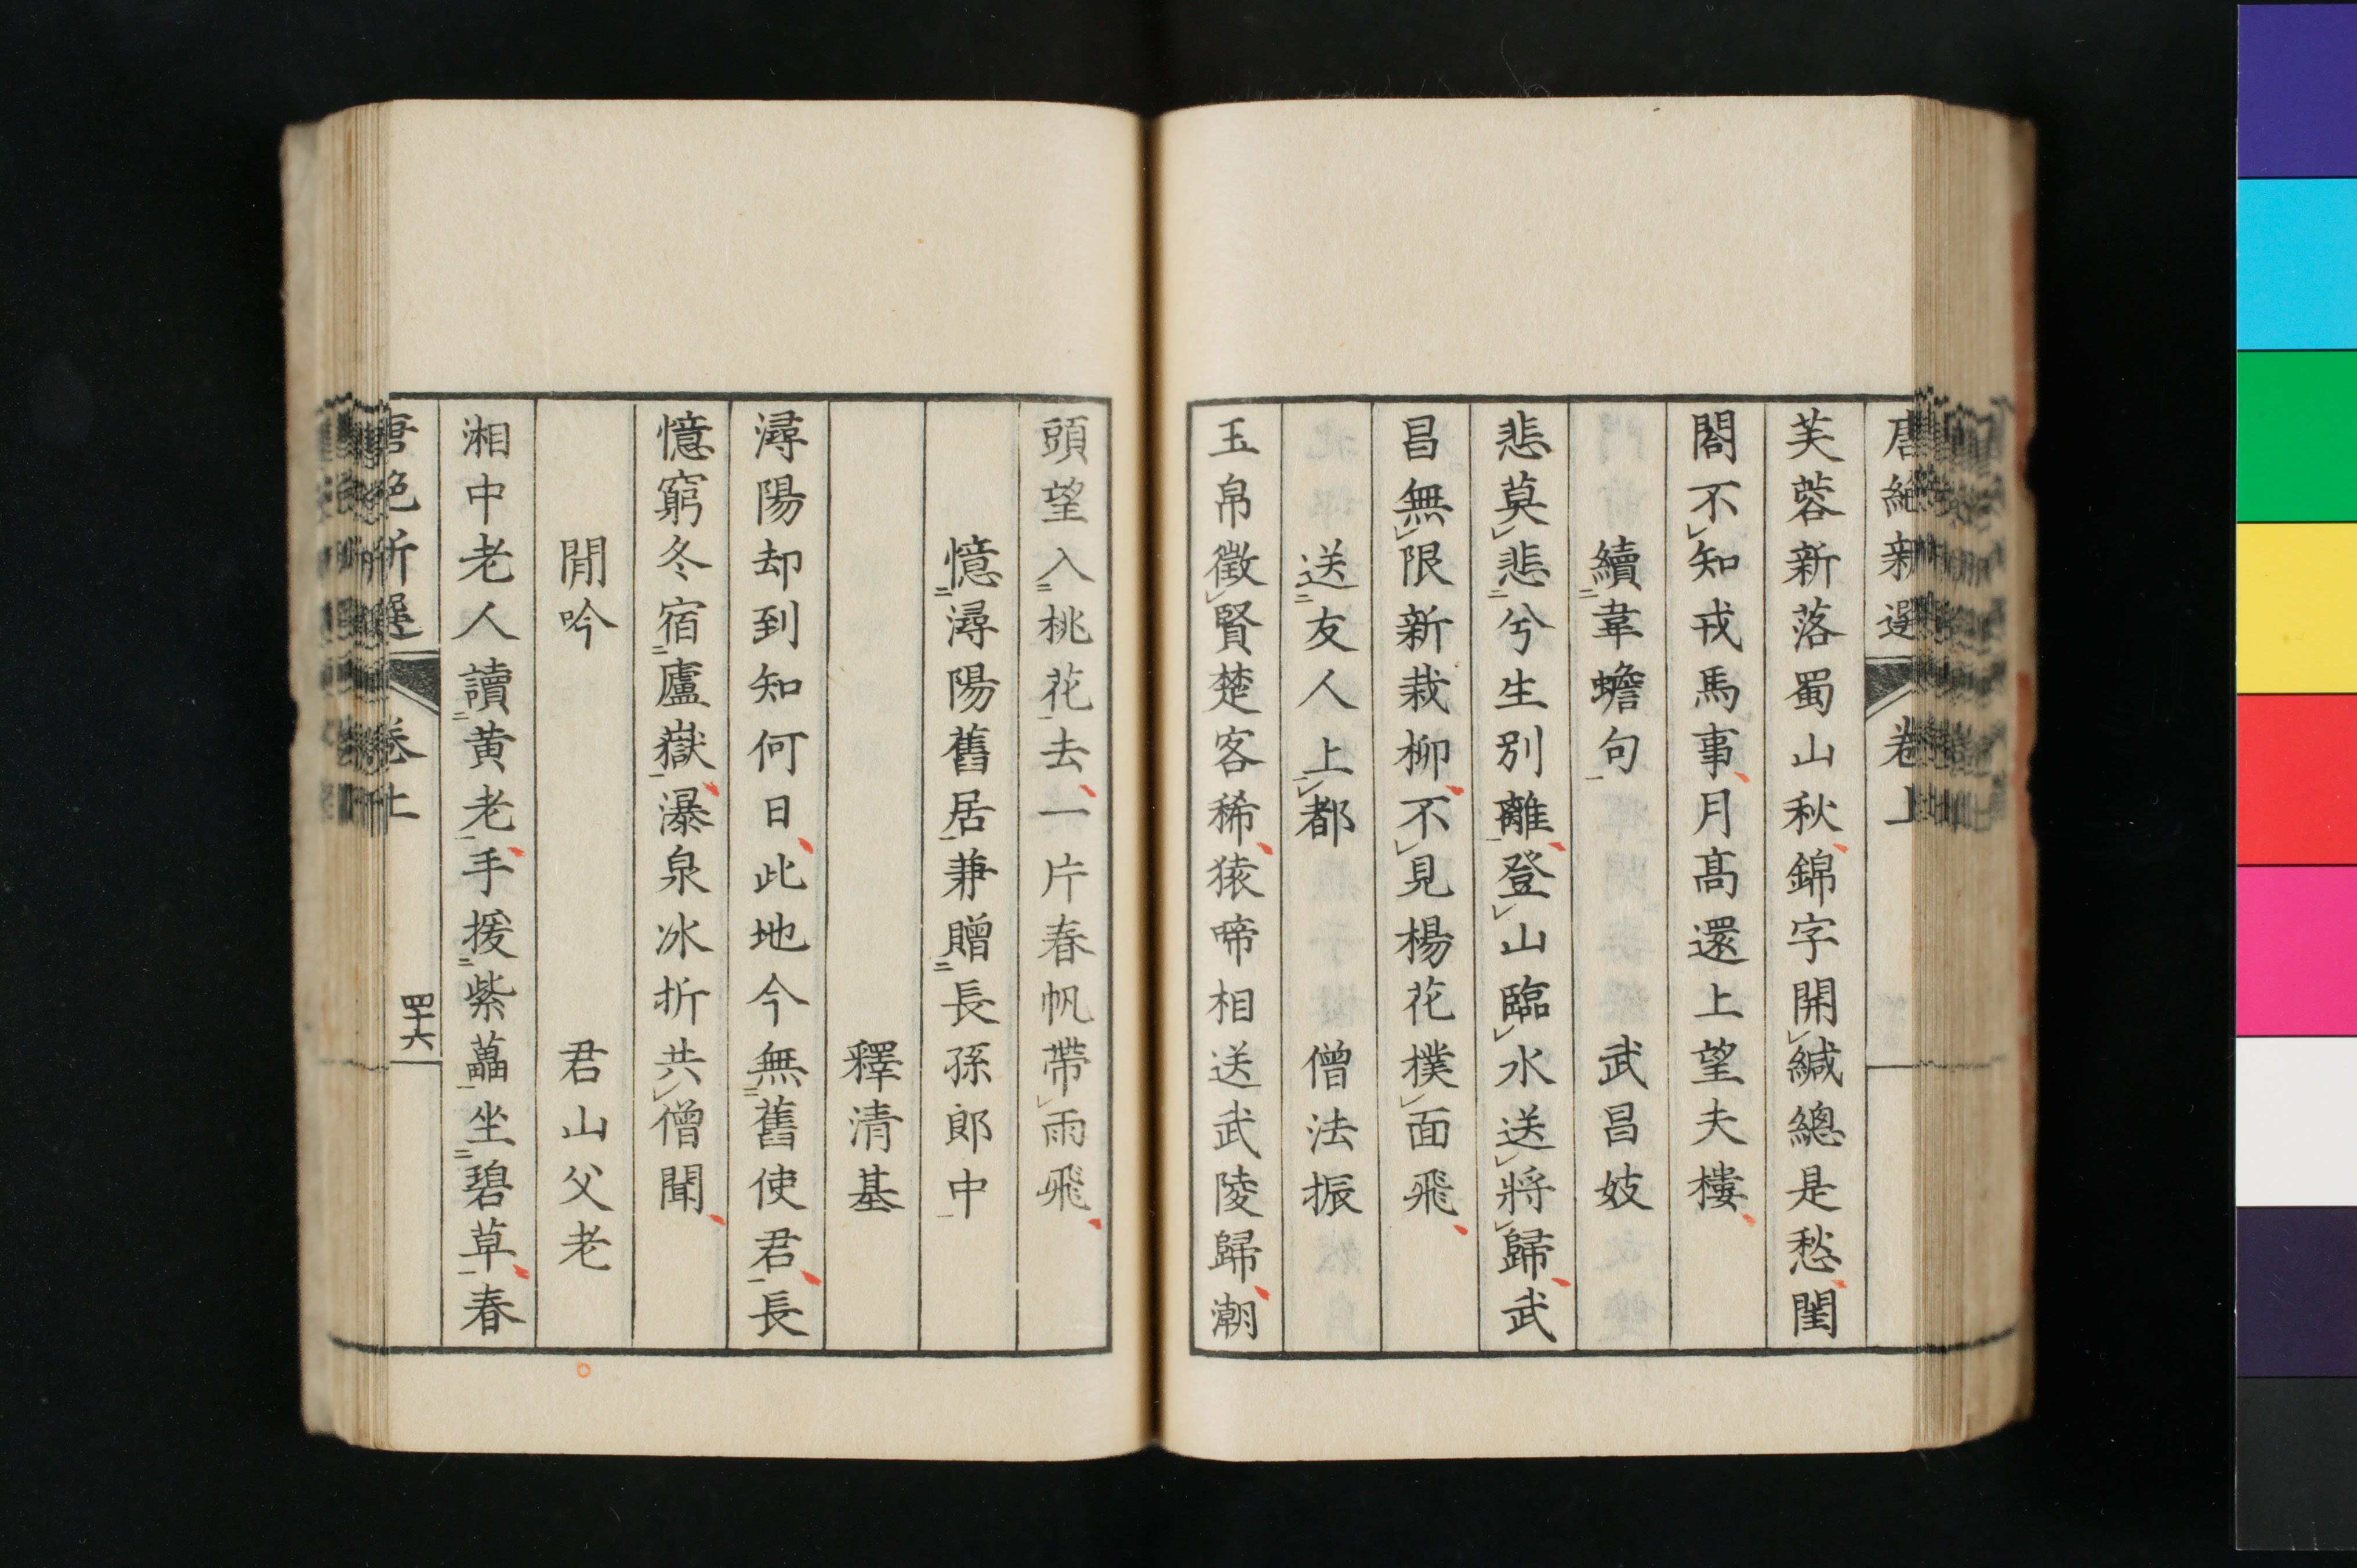 唐絶新選 卷上
芙蓉新落蜀山秋錦字開緘總是愁閨
閤不知戎馬事月髙還上望夫樓
續韋蟾句 武昌妓
悲莫悲兮生別離登山臨水送將歸武
昌無限新栽柳不見楊花撲面飛
送友人上都 僧法振
玉帛徵賢楚客稀猿啼相送武陵歸潮
頭望入桃花去一片春帆帶雨飛
憶潯陽舊居兼贈長孫郎中
釋清基
潯陽却到知何日此地今無舊使君長
憶窮冬宿廬嶽瀑泉冰折共僧聞
閒吟 君山父老
湘中老人讀黄老手援紫藟坐碧草春
唐絶新選 卷上 四十六